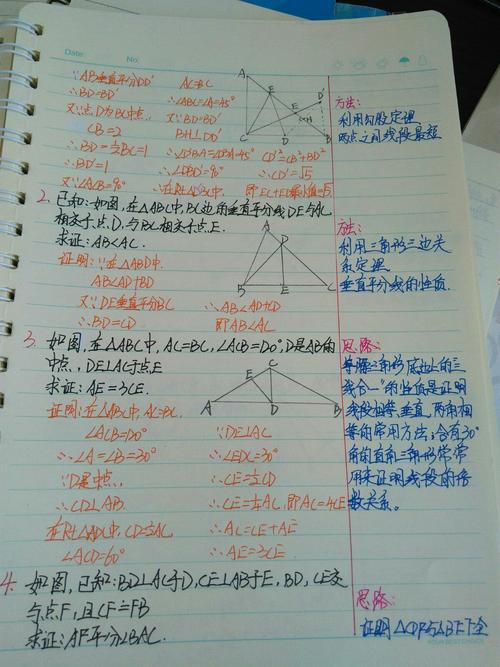 Date:
No:
∵AB垂直平分DD′ AC=BC
∴BD=BD′ ∴∠ABC=∠A=45°
又∵点D为BC中点, 又∵BD=BD′
CB=2 BH⊥DD′
∴BD=½BC=1 ∴∠D′BA=∠DBA=45° CD′²=CB²+BD²
∴BD′=1 ∴∠DBD′=90° ∴CD′=√5
又∵∠ACB=90° ∴在Rt△D′BC中, 即EC+ED最小值=√5
A
E
D′
E
H
C D B
方法:
利用勾股定理
两点之间线段最短
2. 已知:如图,在△ABC中,BC边的垂直平分线DE与AC
相交于点D,与BC相交于点E.
求证:AB<AC.
证明:∵在△ABD中.
AB<AD+BD
又∵DE垂直平分BC ∴AB<AD+CD
∴BD=CD 即AB<AC
A
D
B E C
方法:
利用三角形三边关
系定理
垂直平分线的性质.
3. 如图,在△ABC中,AC=BC,∠ACB=120°,D是AB的
中点,DE⊥AC于点E
求证:AE=3CE.
证明:在△ABC中,AC=BC.
∠ACB=120° ∵DE⊥AC
∴∠A=∠B=30° ∴∠EDC=30°
∵D是中点, ∴CE=½CD
∴CD⊥AB. ∴CE=¼AC,即AC=4CE
在Rt△ADC中,CD=½AC ∴AC=CE+AE
∠ACD=60° ∴AE=3CE
C
E
A D B
思路:
等腰三角形底边上的三
线合一的性质是证明
线段相等、垂直、两角相
等的常用方法;含有30°
角的直角三角形常常
用来证明线段的倍
数关系。
4. 如图,已知:BD⊥AC于D,CE⊥AB于E,BD,CE交
与点F,且CF=FB
求证:AF平分∠BAC.
思路:
证明△CDF与△BEF全